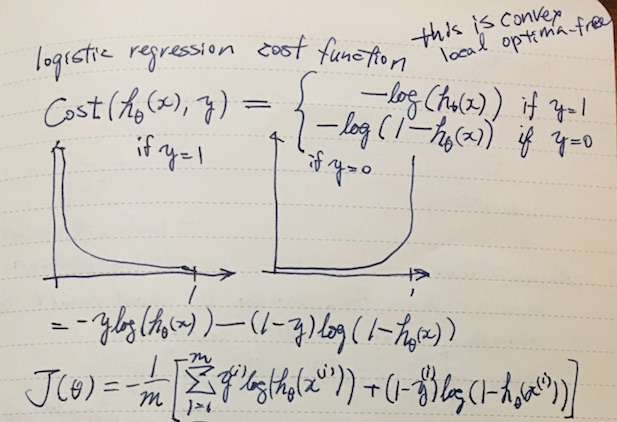 logistic regression cost function
this is convex
local optima-free
Cost(hθ(x), y) = { -log(hθ(x)) if y=1
-log(1-hθ(x)) if y=0
if y=1
if y=0
1
1
= -y log(hθ(x)) - (1-y) log(1-hθ(x))
J(θ) = -1/m [ Σ_{i=1}^{m} y^(i) log(hθ(x^(i))) + (1-y^(i)) log(1-hθ(x^(i))) ]